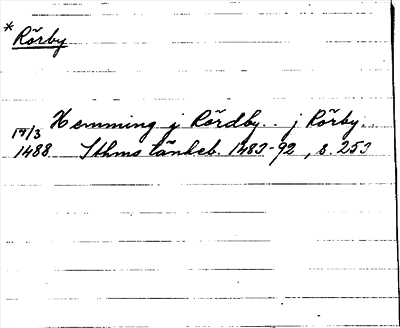 * Rörby
Hemming j Rördby.. j Rörby.
17/3
1488 Sthms tänkeb. 1483-92, s. 253